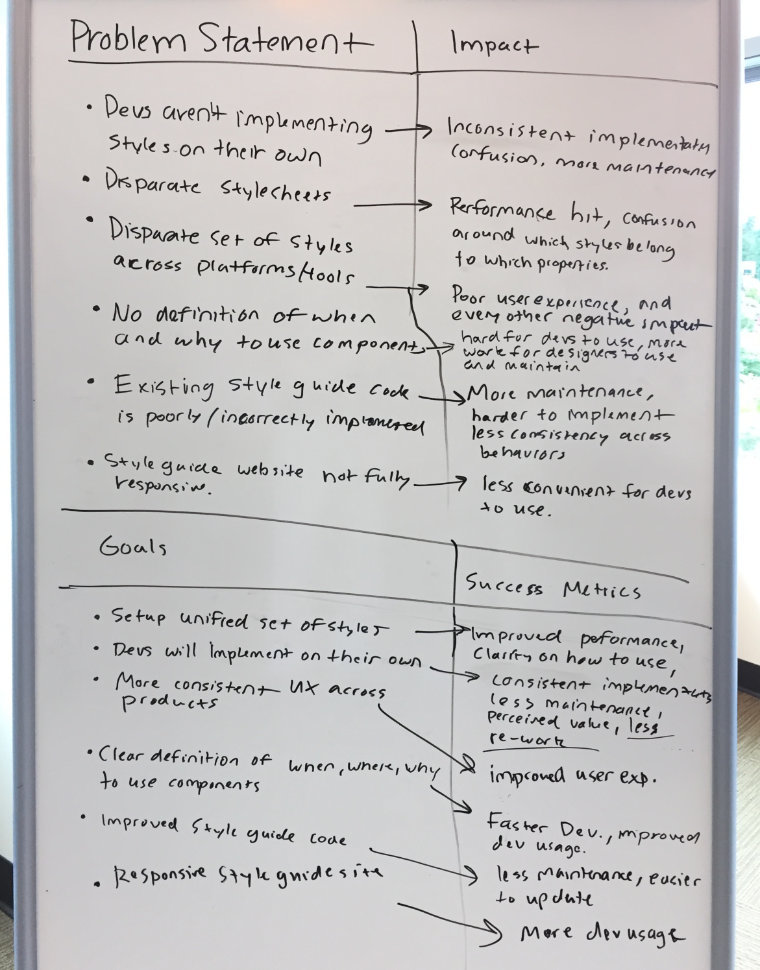 Problem Statement
Impact
• Devs aren't implementing
styles on their own
Inconsistent implementatn
confusion, more maintenance
• Disparate stylesheets
Performance hit, confusion
around which styles belong
to which properties.
• Disparate set of styles
across platforms/tools
Poor user experience, and
every other negative impact
• No definition of when
and why to use component
hard for devs to use, more
work for designers to use
and maintain
• Existing style guide code
is poorly/incorrectly implemented
More maintenance,
harder to implement
less consistency across
behaviors
• Style guide website not fully
responsive.
less convenient for devs
to use.
Goals
Success Metrics
• Setup unified set of styles
Improved peformance,
Clarity on how to use,
• Devs will implement on their own
consistent implementations
less maintenance,
perceived value, less
re-work
• More consistent UX across
products
improved user exp.
• Clear definition of when, where, why
to use components
Faster Dev., improved
dev usage.
• Improved Style guide code
less maintenance, easier
to update
• Responsive style guide site
More dev usage